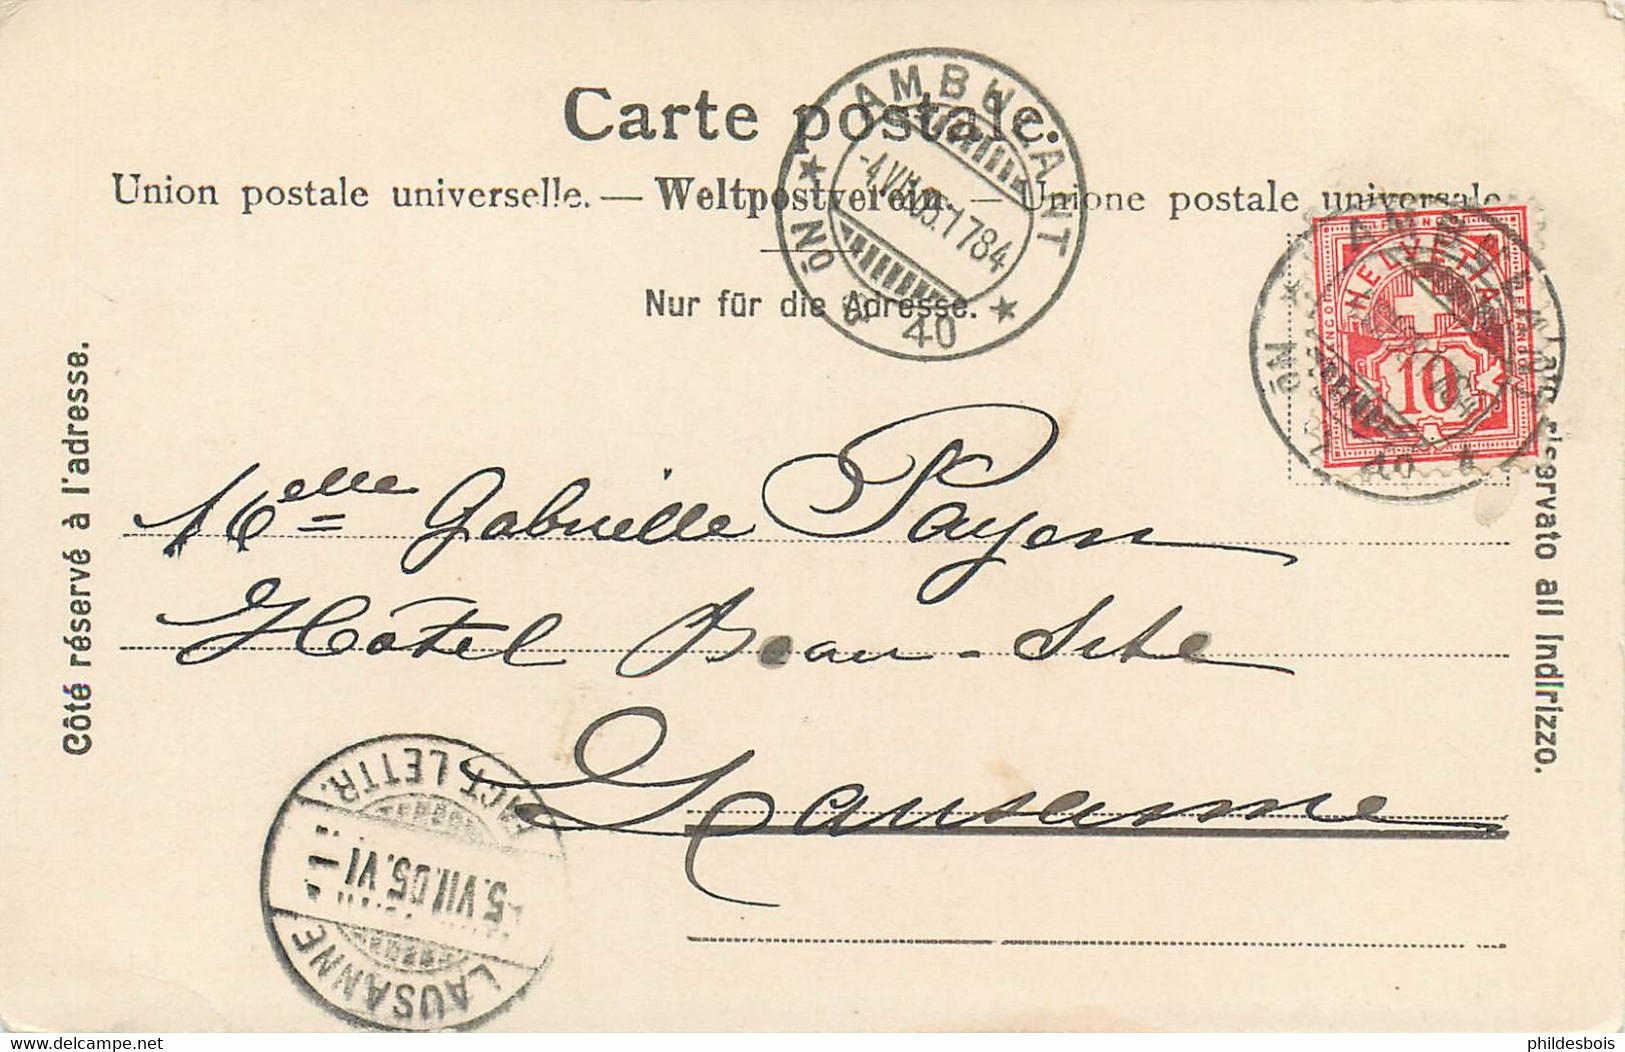 Carte postale.
Union postale universelle. — Weltpostverein. — Unione postale universale
Nur für die Adresse.
Côté réservé à l'adresse.
Lato riservato all Indirizzo.
AMBULANT
-4.VII.05.1784
No 40
HELVETIA
FRANCO
10
AMBULANT
No 40
Melle Gabrielle Payen
Hôtel Beau-Site
Lausanne
LAUSANNE
-5.VII.05.VI-
LETTR.
www.delcampe.net
phildesbois